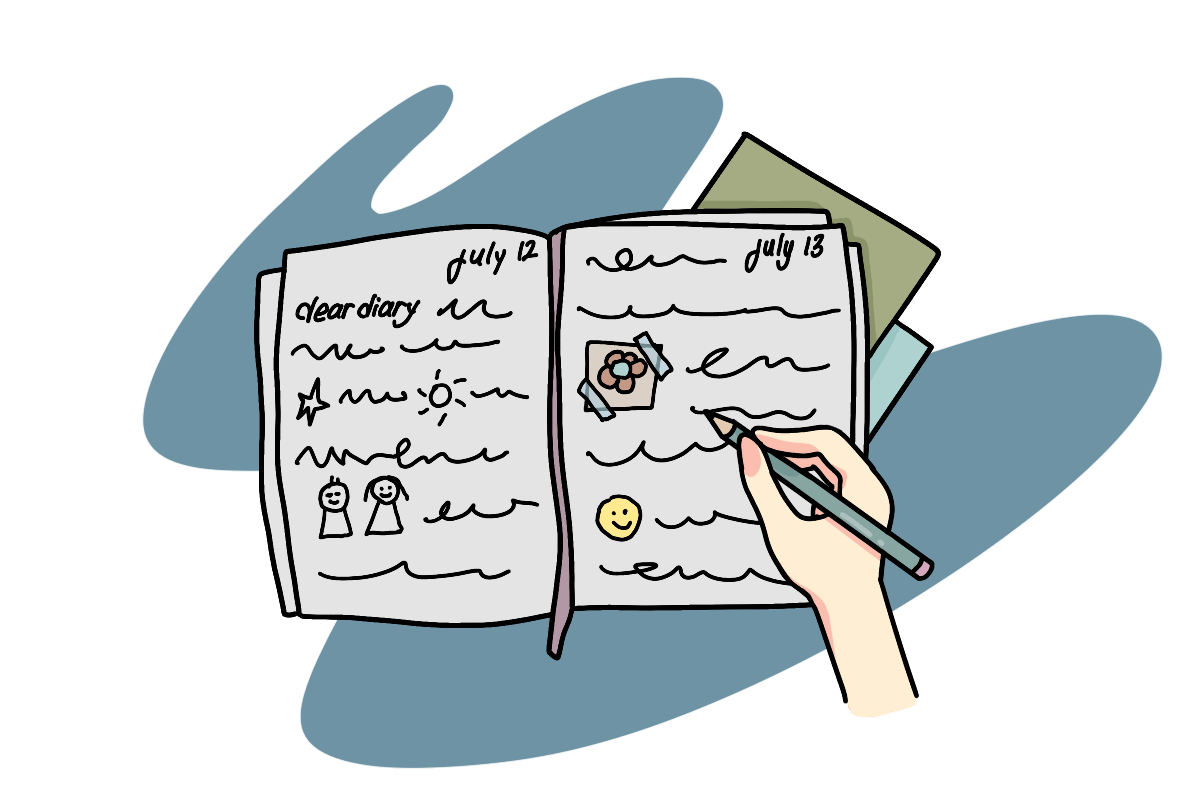 july 12
dear diary
july 13